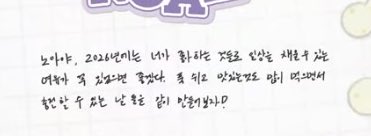 노아야, 2026년에는 너가 좋아하는 것들로 일상을 채울 수 있는
여유가 꼭 있었으면 좋겠다. 푹 쉬고 맛있는것도 많이 먹으면서
충전할 수 있는 날들을 같이 만들어보자!